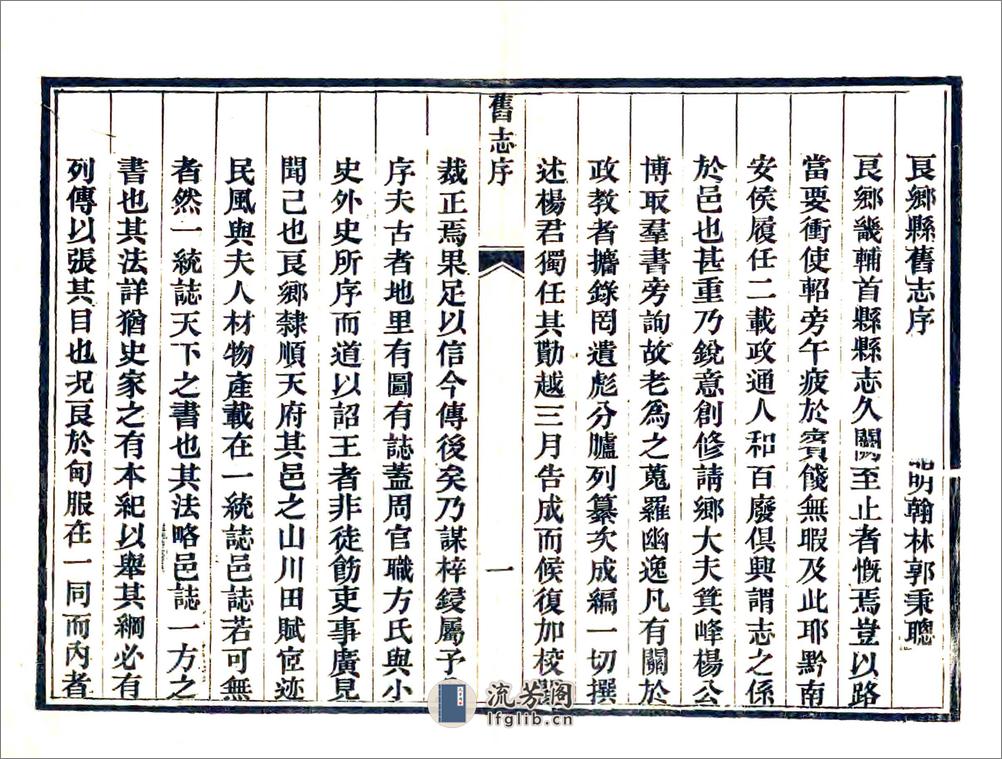 良鄉縣舊志序
明翰林郭秉聰
良鄉畿輔首縣縣志久闕至止者慨焉豈以路
當要衝使軺旁午疲於賓餞無暇及此耶黔南
安侯履任二載政通人和百廢俱興謂志之係
於邑也甚重乃銳意創修請鄉大夫箕峰楊公
博取羣書旁詢故老為之蒐羅幽逸凡有關於
政教者攟錄罔遺彪分臚列纂次成編一切撰
述楊君獨任其勤越三月告成而候復加校
舊志序
一
裁正焉果足以信今傳後矣乃謀梓鋟屬予
序夫古者地里有圖有誌蓋周官職方氏與小
史外史所序而道以詔王者非徒飭吏事廣見
聞已也良鄉隸順天府其邑之山川田賦宦迹
民風與夫人材物產載在一統誌邑誌若可無
者然一統誌天下之書也其法略邑誌一方之
書也其法詳猶史家之有本紀以舉其綱必有
列傳以張其目也况良於甸服在一同而內者
流芳閣
lfglib.cn